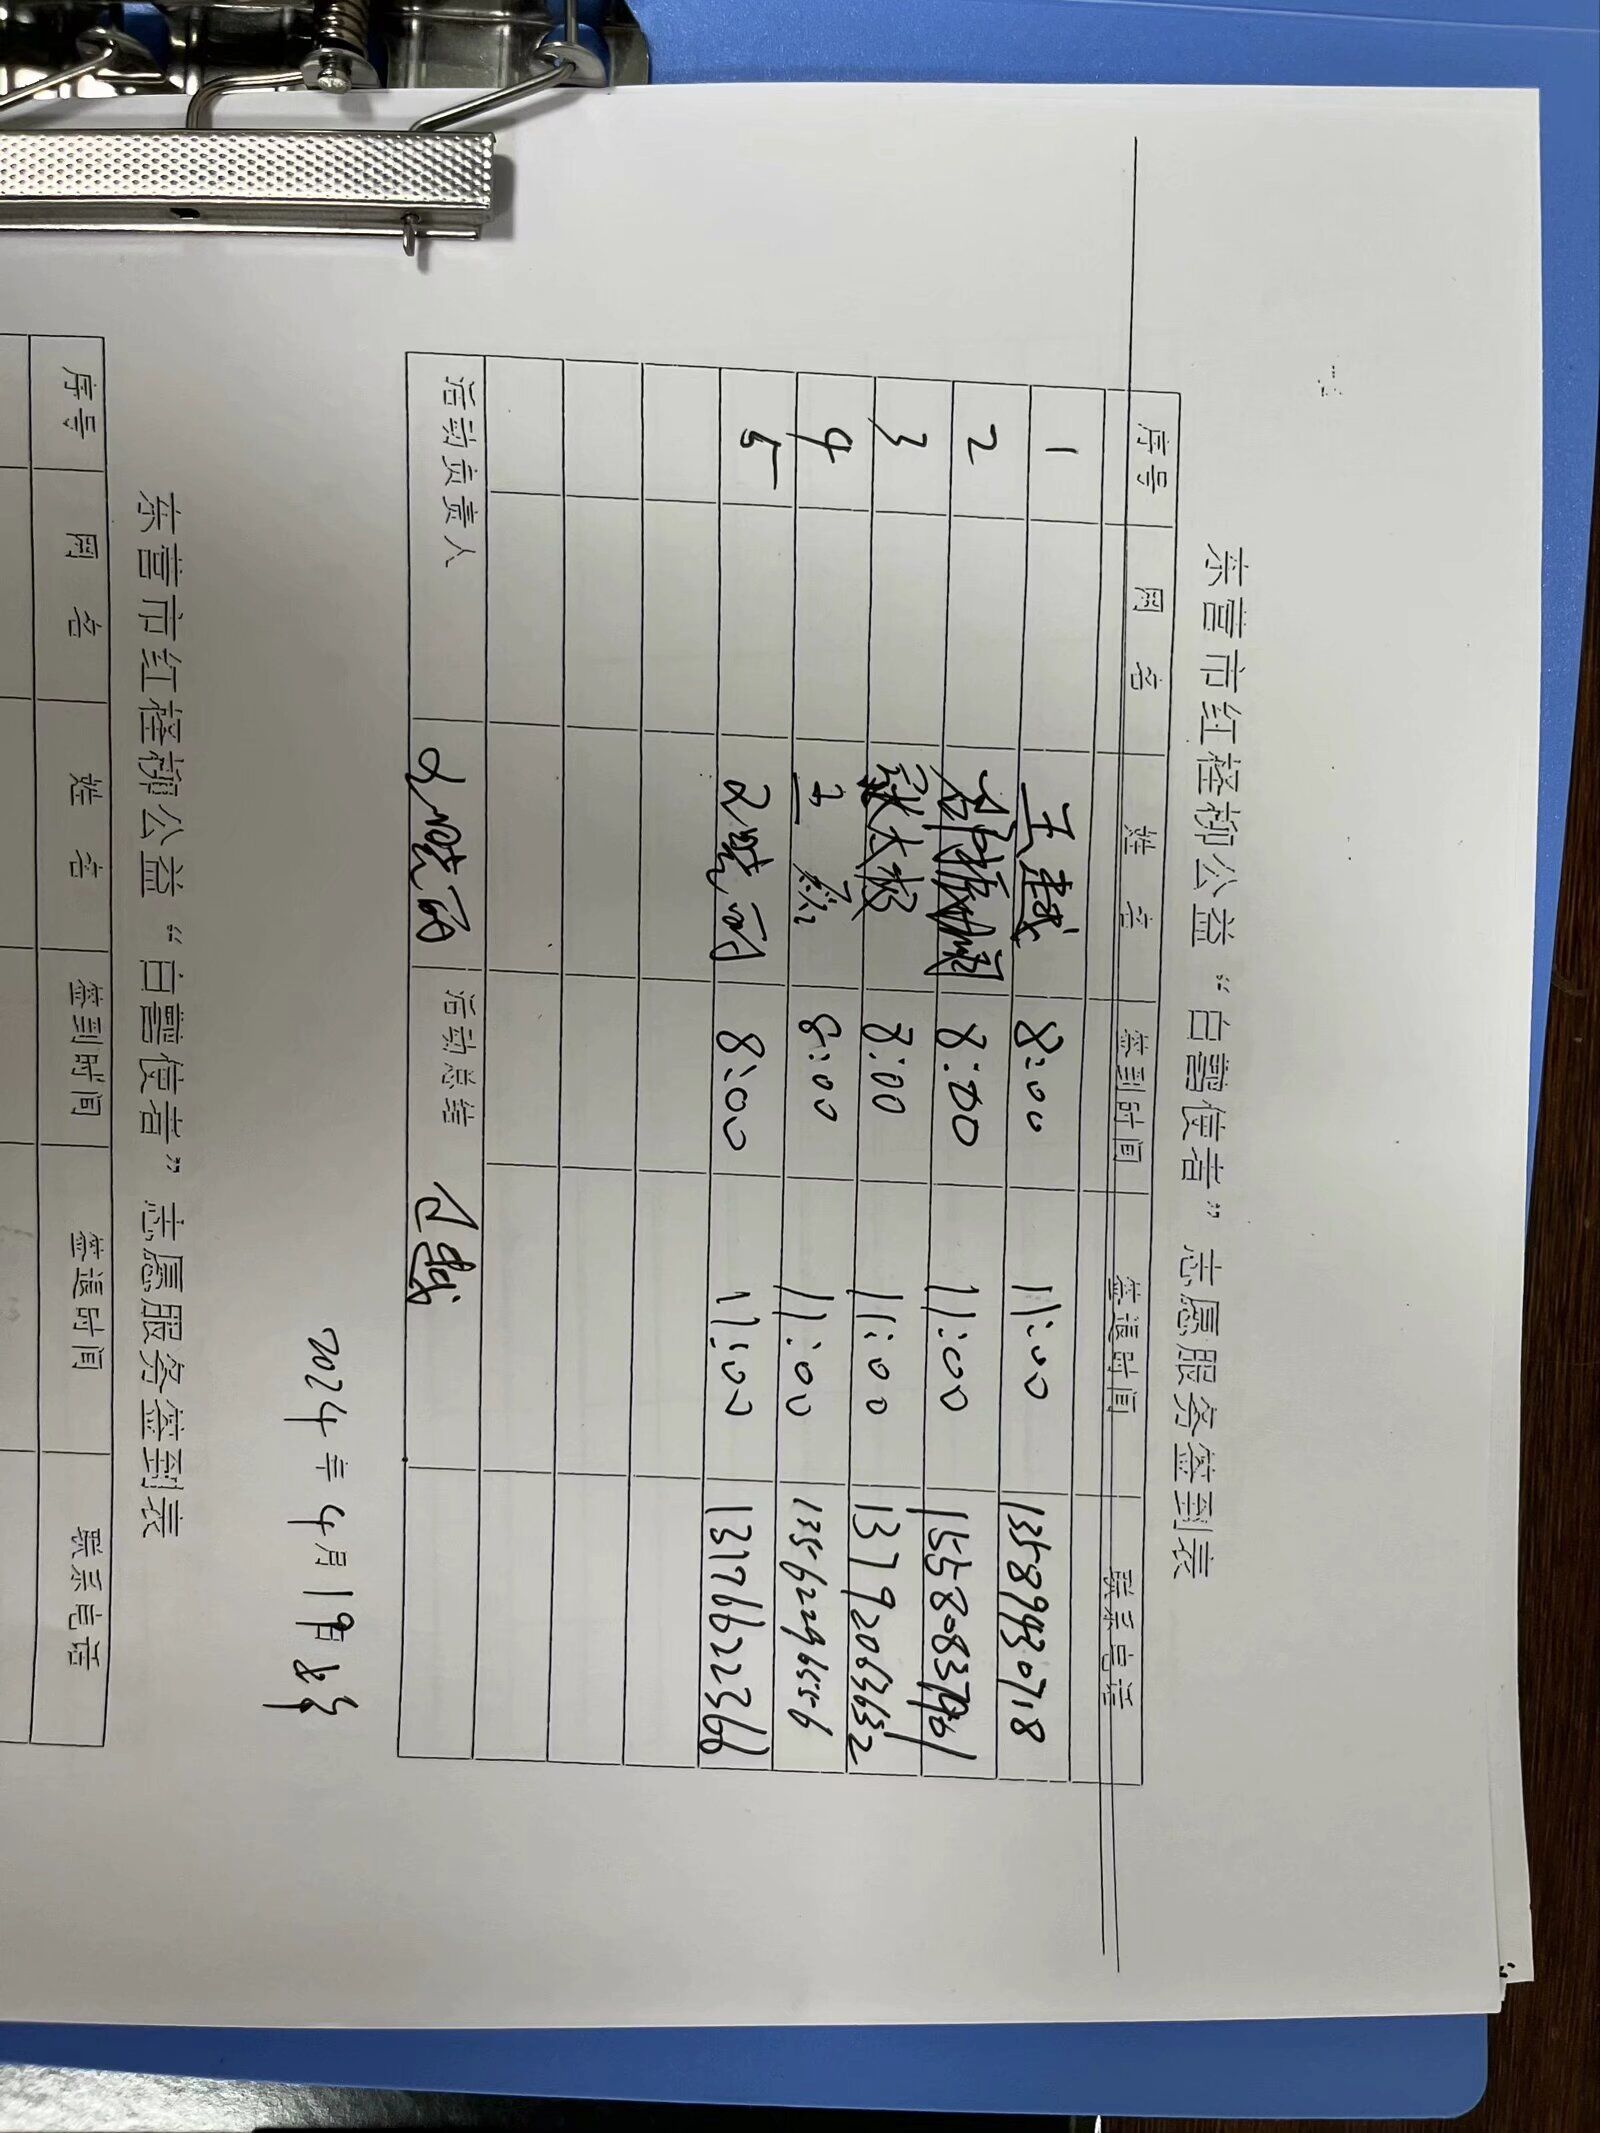 东营市红柽柳公益“白鹭使者”志愿服务签到表
序号 网名 姓名 签到时间 签退时间 联系电话
1 王越 8:00 11:00 13589430718
2 8:00 11:00
3 8:00 11:00 13792063632
4 王 8:00 11:00 13562296556
5 8:00 11:00 13176622366
活动负责人 活动总结
2024年4月19日
东营市红柽柳公益“白鹭使者”志愿服务签到表
序号 网名 姓名 签到时间 签退时间 联系电话